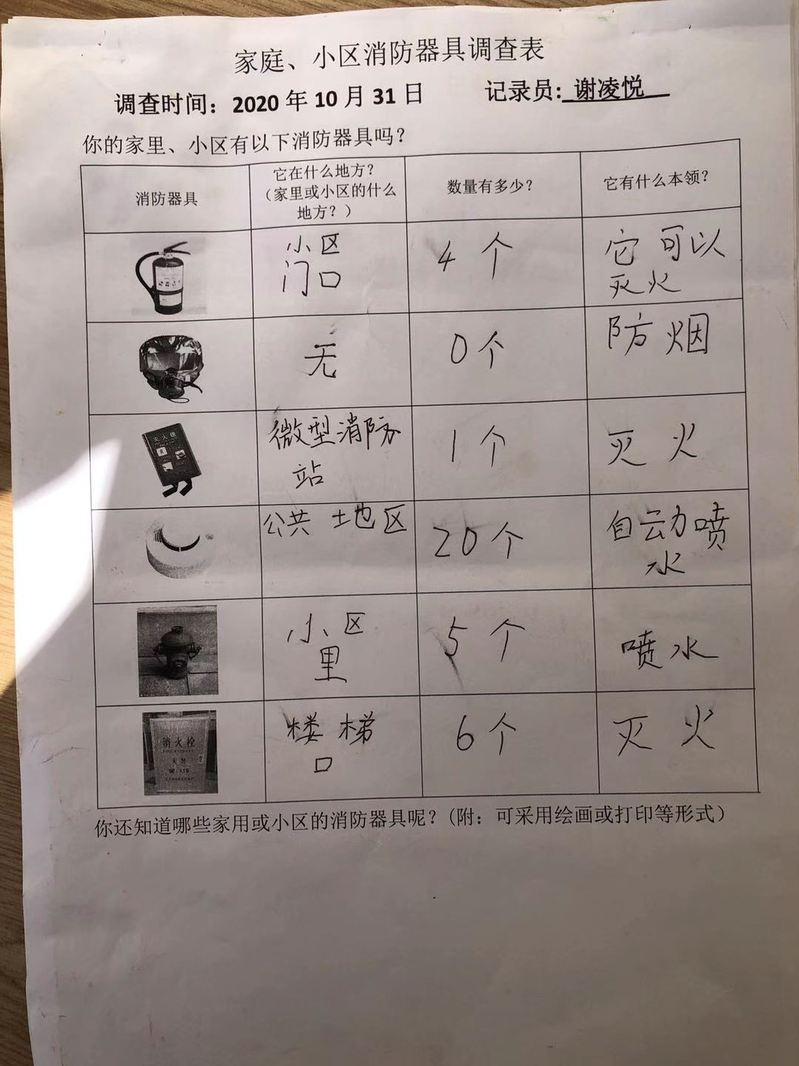 家庭、小区消防器具调查表
调查时间：2020 年 10 月 31 日 记录员: 谢凌悦
你的家里、小区有以下消防器具吗？
消防器具
它在什么地方？
（家里或小区的什么
地方？）
数量有多少？
它有什么本领？
小区
门口
4 个
它可以
灭火
无
0个
防烟
灭火毯
微型消防
站
1个
灭火
公共地区
20个
自动喷
水
小区
里
5个
喷水
消火栓
火警
119
楼梯
口
6个
灭火
你还知道哪些家用或小区的消防器具呢？(附：可采用绘画或打印等形式）